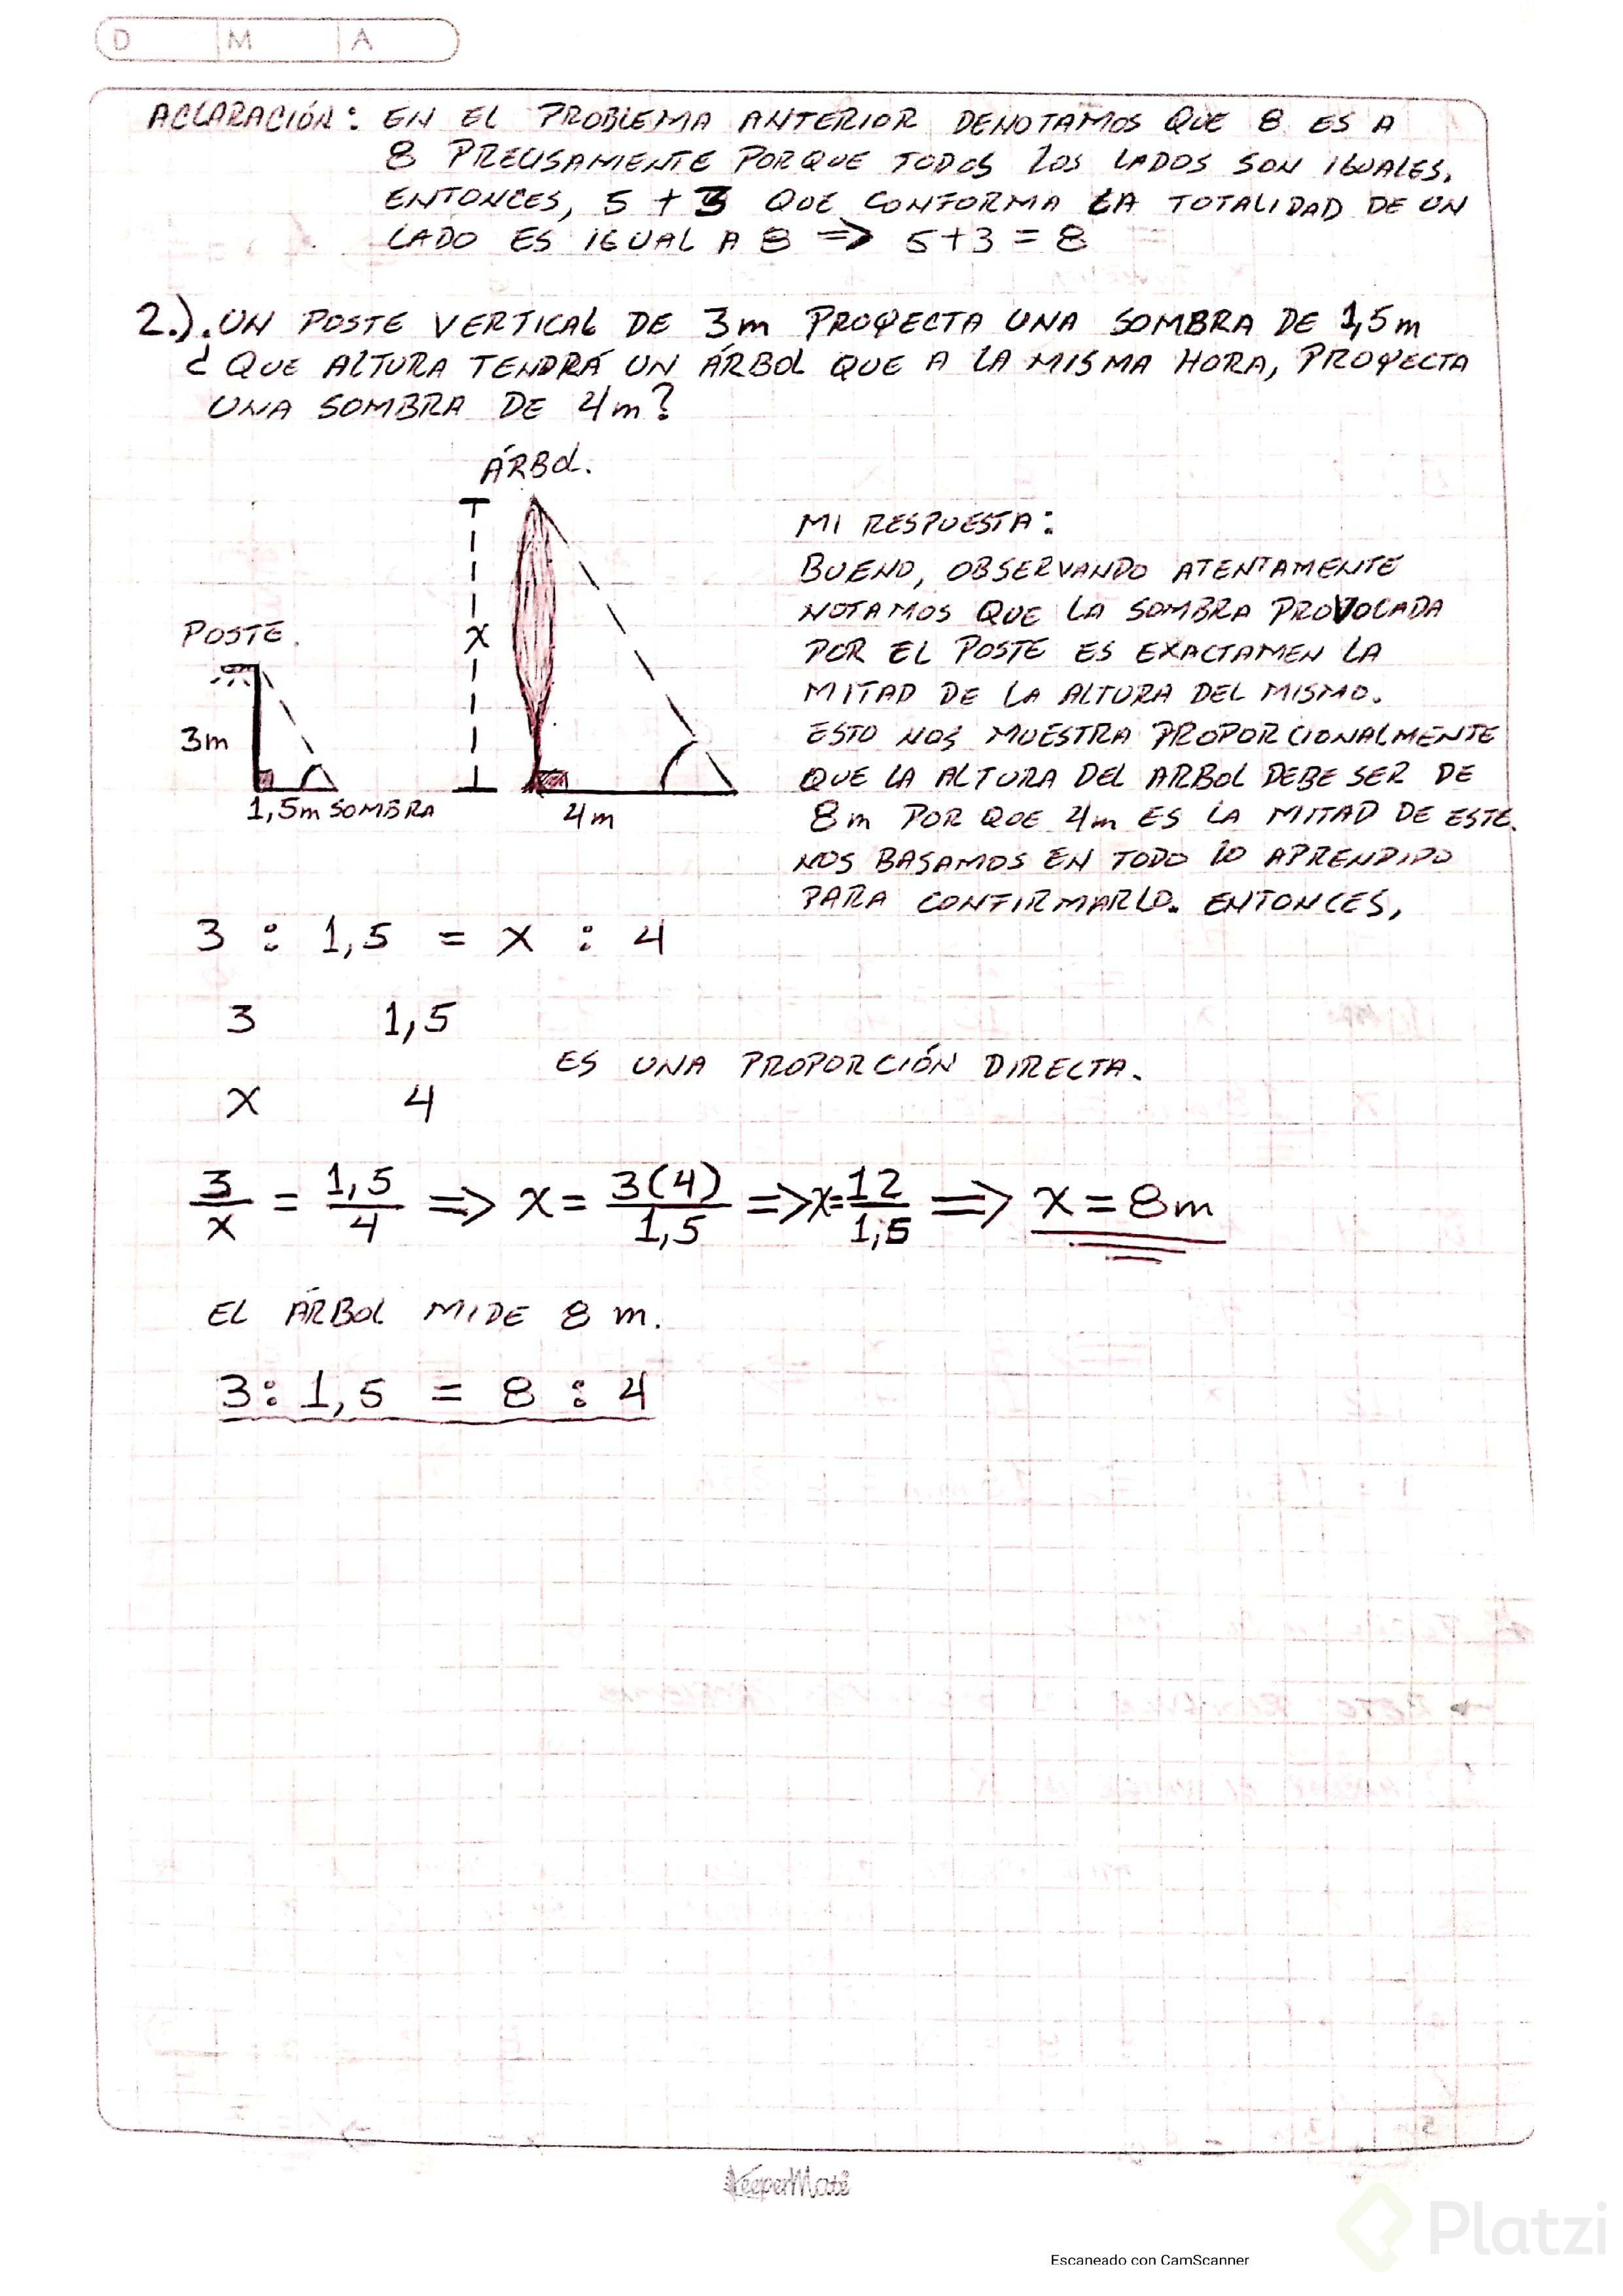 D M A
ACLARACIÓN: EN EL PROBLEMA ANTERIOR DENOTAMOS QUE 8 ES A
8 PRECISAMENTE PORQUE TODOS LOS LADOS SON IGUALES.
ENTONCES, 5 + 3 QUE CONFORMA LA TOTALIDAD DE UN
LADO ES IGUAL A 8 => 5+3 = 8
2.). UN POSTE VERTICAL DE 3m PROYECTA UNA SOMBRA DE 1,5m
¿QUE ALTURA TENDRÁ UN ÁRBOL QUE A LA MISMA HORA, PROYECTA
UNA SOMBRA DE 4m?
ÁRBOL.
POSTE.
X
3m
1,5m SOMBRA
4m
MI RESPUESTA:
BUENO, OBSERVANDO ATENTAMENTE
NOTAMOS QUE LA SOMBRA PROVOCADA
POR EL POSTE ES EXACTAMEN LA
MITAD DE LA ALTURA DEL MISMO.
ESTO NOS MUESTRA PROPORCIONALMENTE
QUE LA ALTURA DEL ARBOL DEBE SER DE
8m POR QUE 4m ES LA MITAD DE ESTE.
NOS BASAMOS EN TODO LO APRENDIDO
PARA CONFIRMARLO. ENTONCES,
3 : 1,5 = X : 4
3 1,5
ES UNA PROPORCIÓN DIRECTA.
X 4
3/X = 1,5/4 => X = 3(4)/1,5 => X = 12/1,5 => X = 8m
EL ÁRBOL MIDE 8 m.
3 : 1,5 = 8 : 4
KeeperMate
Platzi
Escaneado con CamScanner